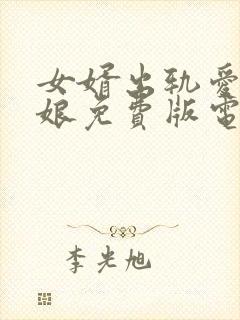 女婿出轨爱
娘免費版電
李光旭